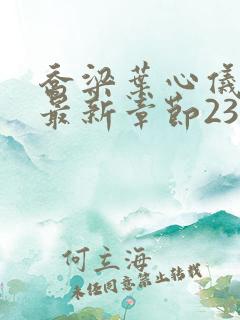 乔梁叶心仪
最新章节23
何立海
未经同意禁止转载